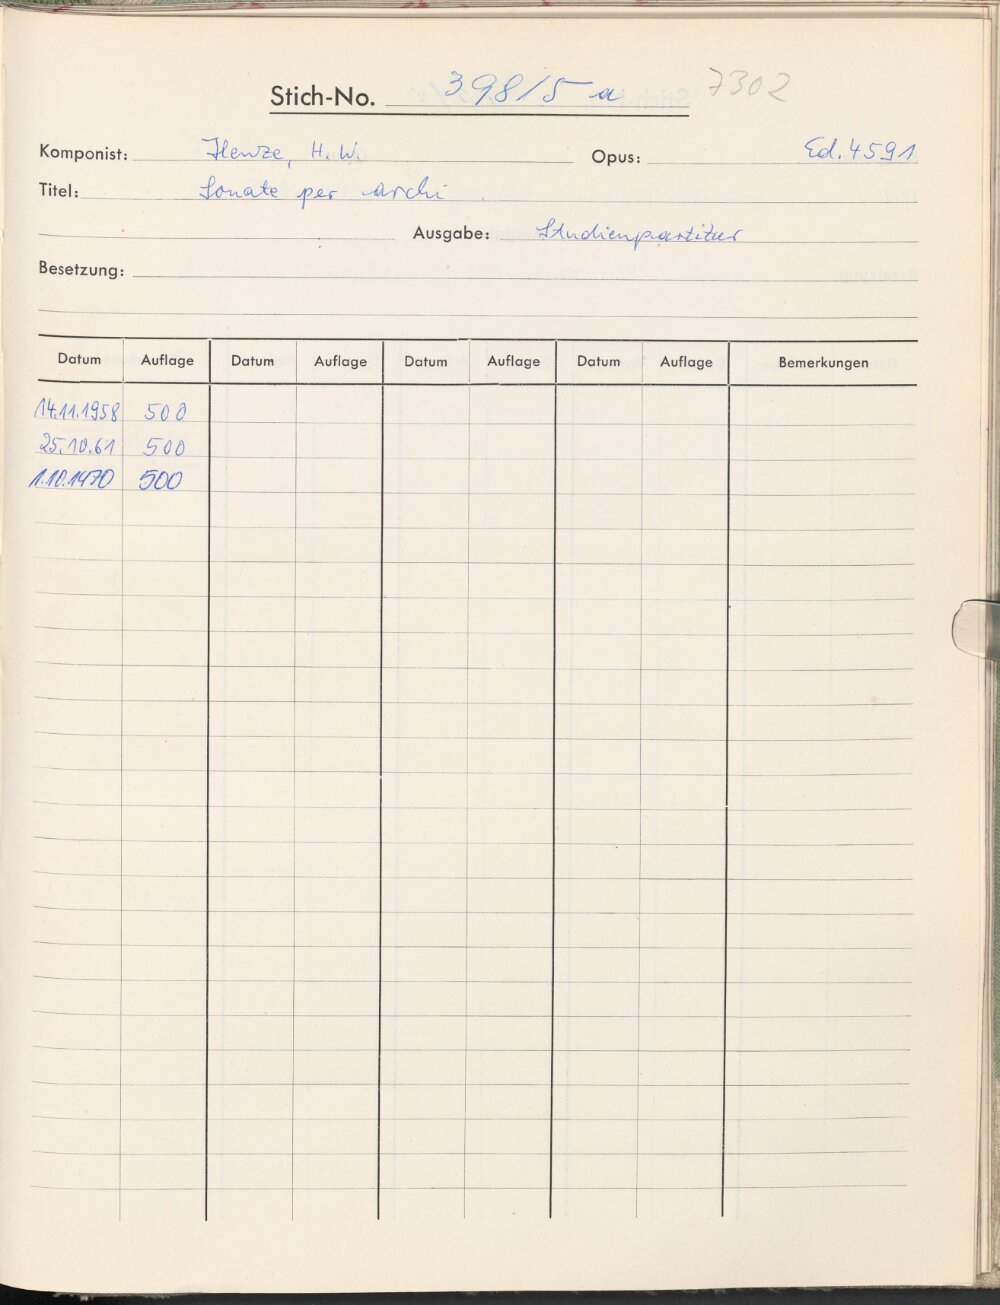 Stich-No. 39815 a 7302
Komponist: Henze, H. W. Opus: Ed. 4591
Titel: Sonate per archi
Ausgabe: Studienpartitur
Besetzung:
Datum Auflage Datum Auflage Datum Auflage Datum Auflage Bemerkungen
14.11.1958 500
25.10.61 500
1.10.1970 500